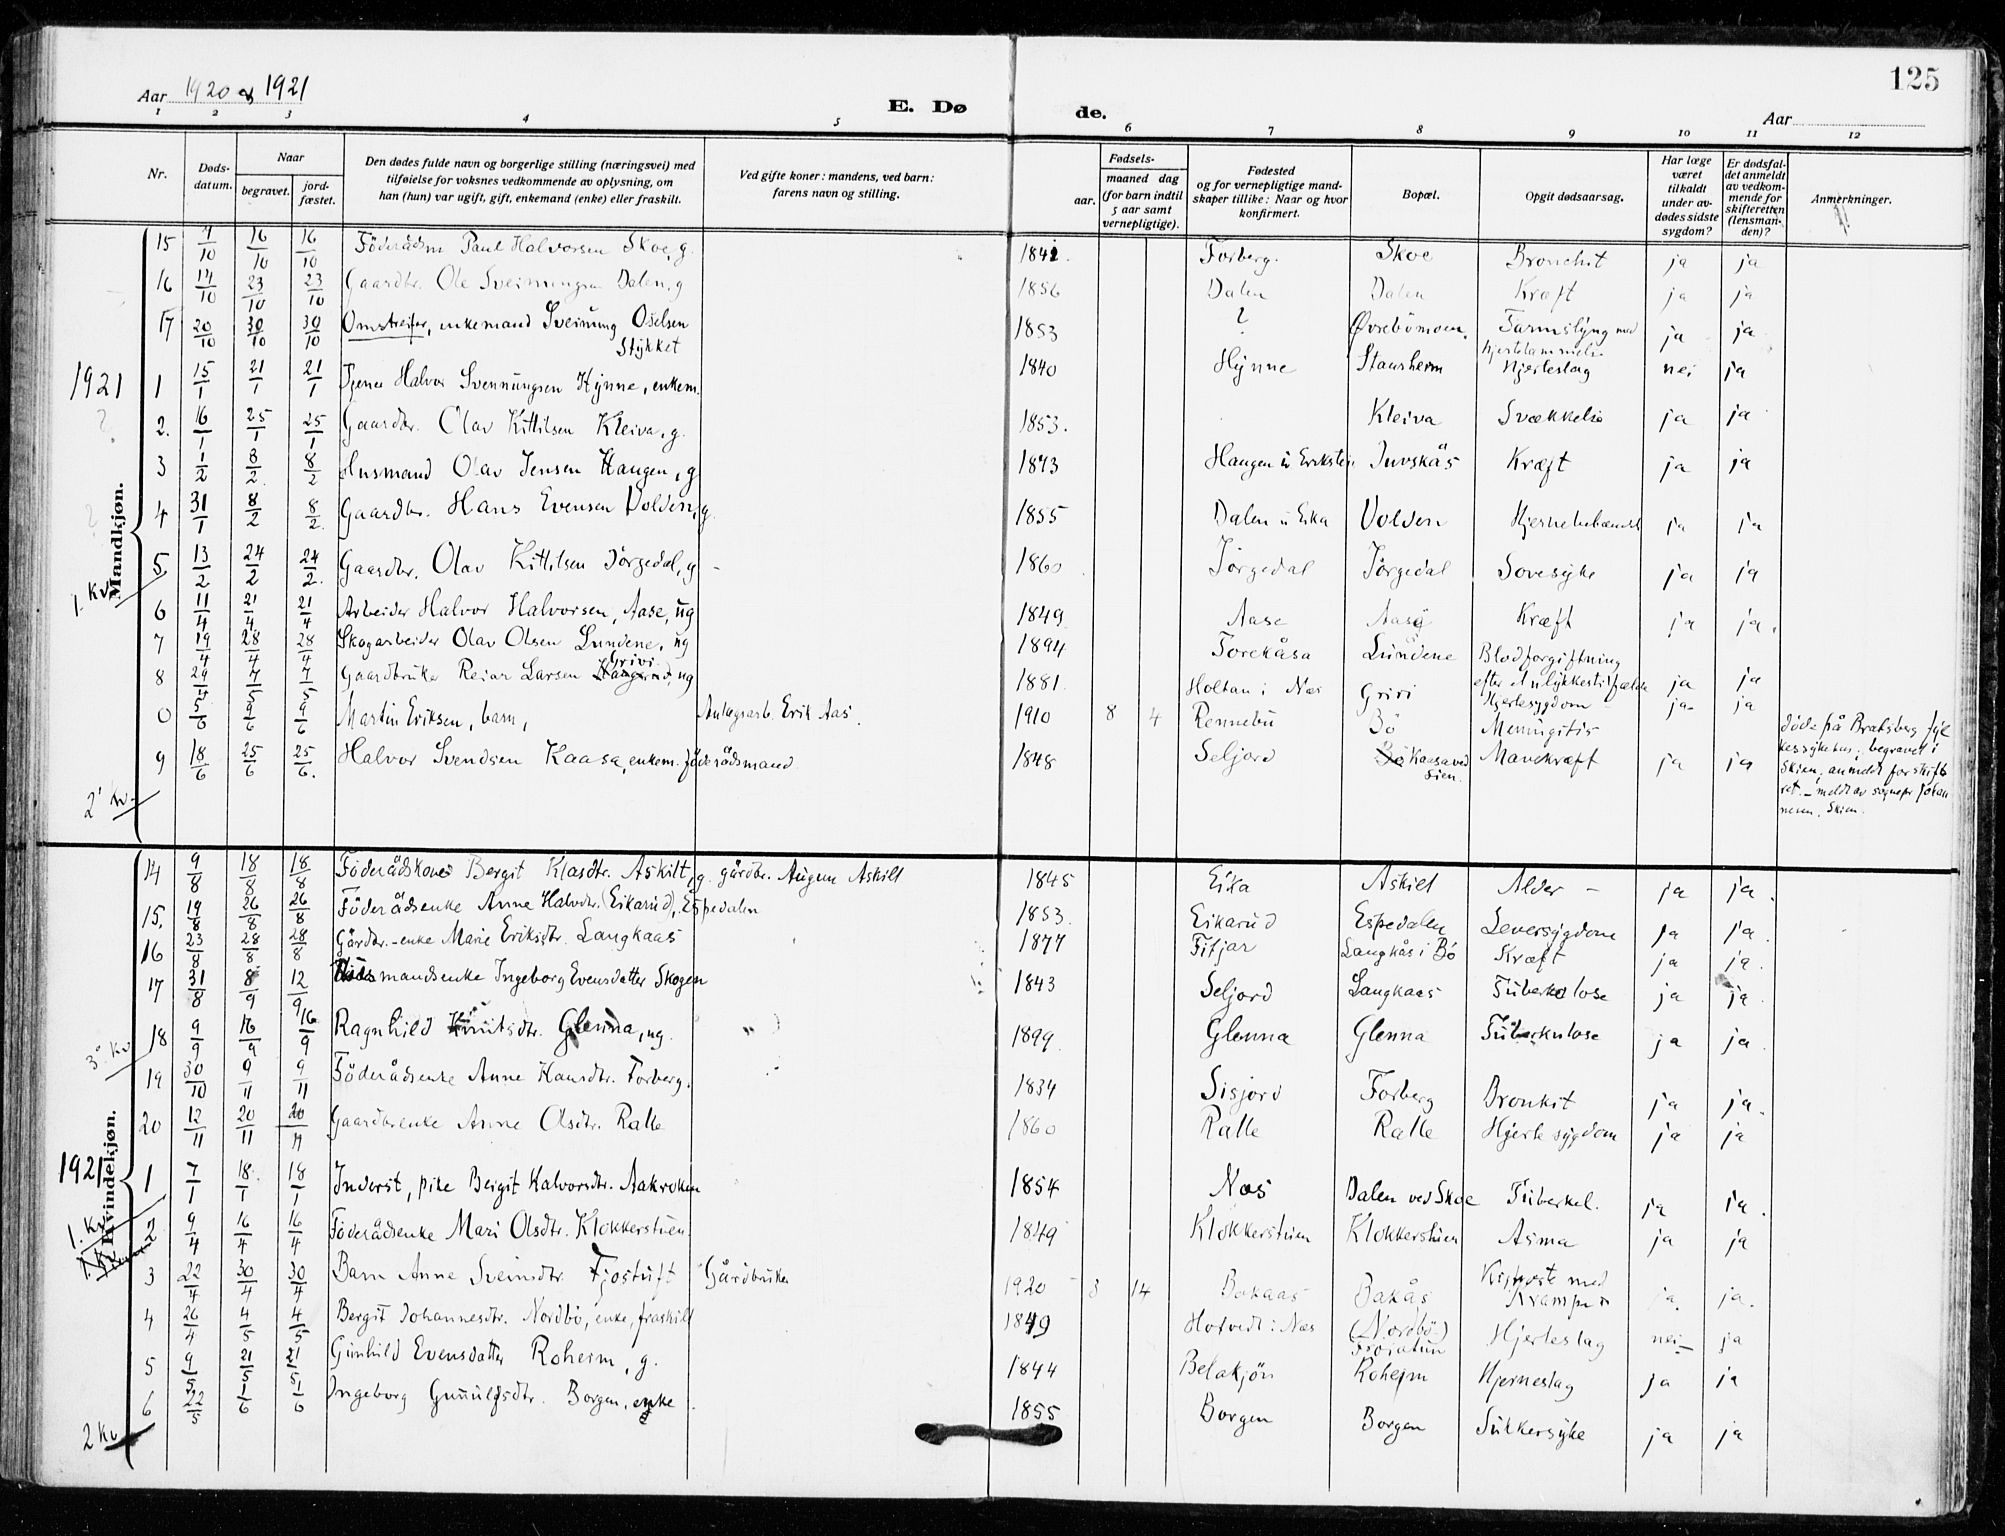 125
Aar 1920 & 1921
E. Døde.
Aar
1 2 3 4 5 6 7 8 9 10 11 12
Nr.
Dødsdatum.
Naar
begravet.
jordfæstet.
Den dødes fulde navn og borgerlige stilling (næringsvei) med tilføielse for voksnes vedkommende av oplysning, om han (hun) var ugift, gift, enkemand (enke) eller fraskilt.
Ved gifte koner: mandens, ved barn: farens navn og stilling.
aar.
Fødsels-
maaned dag
(for barn indtil 5 aar samt vernepligtige).
Fødested og for vernepligtige mandskaper tillike: Naar og hvor konfirmert.
Bopæl.
Opgit dødsaarsag.
Har læge været tilkaldt under avdødes sidste sygdom?
Er dødsfaldet anmeldt av vedkommende for skifteretten (lensmanden)?
Anmerkninger.
Mandkjøn.
15 7/10 16/10 16/10 Föderådsm Paul Halvorsen Skoe, g. 1842. Forberg. Skoe Bronchit ja ja
16 14/10 23/10 23/10 Gaardbr. Ole Sveinungsen Dalen, g 1856 Dalen Dalen Kræft ja ja
17 20/10 30/10 30/10 Omstreifer, enkemand Sveinung Olselsen Stykket 1853 ? Øvrebömoen. Tarmslyng med Hjertelammelse ja ja
1921
1 15/1 21/1 21/1 Tjener Halvor Svennungsen Hynne, enkem. 1840 Hynne Staasheim Hjerteslag nei ja
2. 16/1 25/1 25/1 Gaardbr. Olav Kittilsen Kleiva, g. 1853. Kleiva Svækkelse ja ja
3 1/2 8/2 8/2 Husmand Olav Jensen Haugen, g 1873 Haugen u Erikstein Juvskås Kræft ja ja
4 31/1 8/2 8/2. Gaardbr. Hans Evensen Volden, g. 1855 Dalen u Eika Volden ja ja
5 13/2 24/2 24/2. Gaardbr. Olav Kittilsen Jörgedal, g 1860 Jörgedal Jörgedal Sovesyke ja ja
1. Kv
6 11/4 21/4 21/4 Arbeider Halvor Halvorsen, Aase, ug 1849 Aase Aase Kræft ja ja.
7 19/4 28/4 28/4 Skogarbeider Olav Olsen Lundene, ug 1894 Torekåsa Lundene Blodforgiftning efter et ulykkestilfælde ja ja
8 29/4 7/5 7/5 Gaardbruker Reiar Larsen Grivi, ug 1881. Holtan i Næs Grivi Hjertesygdom ja ja
0 5/6 9/6 9/6 Martin Eriksen, barn, Anlægsarb. Erik Aas. 1910 8 4 Rennebu Bö Meningitis
döde på Bratsberg fylkessykehus; begravet i Skien, anmeldt for skifteret. – meldt av sognepr Johannesen, Skien.
9 18/6 25/6 25/6. Halvor Svendsen Kaasa, enkem. föderådsmand 1848 Seljord Kaasa ved Sien. Mavekræft ja ja
2' Kv
Kvindekjøn.
14 9/8 18/8 18/8 Föderådskone Bergit Klasdtr. Askilt, g. gårdbr. Augun Askilt 1845 Eika Askilt Alder – ja ja.
15. 19/8 26/8 26/8 Föderådsenke Anne Halvdtr. (Eikarud), Espedalen 1853. Eikarud Espedalen Leversygdom ja ja.
16 23/8 28/8 28/8 Gårdbr.-enke Marie Eriksdtr. Langkaas 1877 Fitjar Langkås i Bö Kræft ja ja.
17 31/8 8/9 12/9 Husmandsenke Ingeborg Evensdatter Skogen 1843 Seljord Langkaas Tuberkulose ja ja.
18 9/9 16/9 16/9 Ragnhild Knutsdtr. Glenna, ug. 1899 Glenna Glenna Tuberkulose ja ja.
3. Kv
19 30/10 9/11 9/11 Föderådsenke Anne Hansdtr. Forberg. 1834 Sisjord Forberg Bronkit ja ja.
20 12/11 20/11 20/11 Gaardbrenke Anne Olsdtr. Ralle 1860 Ralle Ralle Hjertesygdom ja ja
1921
1 7/1 18/1 18/1 Inderst, pike Bergit Halvorsdtr. Aakroken 1854 Næs Dalen ved Skoe Tuberkel. ja ja.
1. Kv
2 9/4 16/4 16/4 Föderådsenke Mari Olsdtr. Klokkerstuen 1849 Klokkerstuen Klokkerstuen Asma ja ja
3 22/4 30/4 30/4 Barn Anne Sveinsdtr. Fjostuft Gårdbruker 1920 3 14 Bakaas Bakås Kighoste med Kramper ja. ja.
4 26/4 4/5 4/5 Bergit Johannesdtr. Nordbö, enke, fraskild 1849 Hotvedt i Næs (Nordbö) Hjerteslag nei ja
5 9/5 21/5 21/5 Gunhild Evensdatter Roheim, g. 1844 Belakjön Roheim Hjerneslag ja ja
6 22/5 1/6 1/6 Ingeborg Gunnulfsdtr. Borgen, enke 1855 Borgen Borgen Sukkersyke ja ja
2 Kv